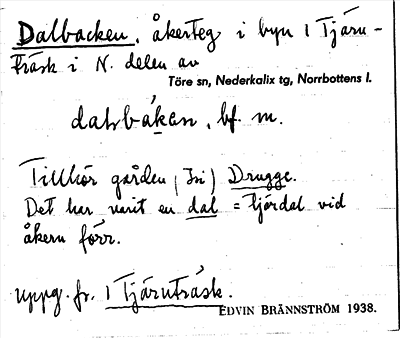 Dalbacken, åkerteg i byn 1 Tjäru-
träsk i N. delen av
Töre sn, Nederkalix tg, Norrbottens l.
dahbakan, bf. m.
Tillhör gården (Isi) Drugge.
Det har varit en dal = tjärdal vid
åkern förr.
uppg. fr. 1 Tjäruträsk.
EDVIN BRÄNNSTRÖM 1938.